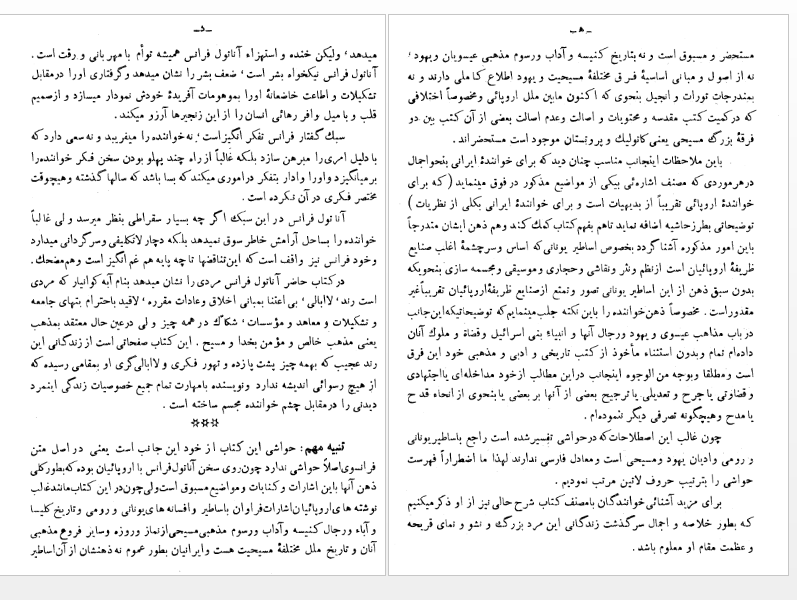 ـ د ـ
میدهد، ولیکن خنده و استهزاء آناتول فرانس همیشه توأم با مهربانی و رقت است.
آناتول فرانس نیکخواه بشر است، ضعف بشر را نشان میدهد وگرفتاری اورا درمقابل
تشکیلات و اطاعت خاضعانهٔ اورا بموهومات آفریدهٔ خودش نمودار میسازد و ازصمیم
قلب و با میل وافر رهائی انسان را از این زنجیرها آرزو میکند.
سبك گفتار فرانس تفکر انگیز است، نه خواننده را میفریبد و نه سعی دارد که
با دلیل امری را مبرهن سازد بلکه غالباً از راه چند پهلو بودن سخن فکر خواننده را
بر میانگیزد و اورا وادار بتفکر در اموری میکند که بسا باشد که سالها گذشته و هیچوقت
مختصر فکری در آن نکرده است.
آناتول فرانس در این سبك اگر چه بسیار سقراطی بنظر میرسد ولی غالباً
خواننده را بساحل آرامش خاطر سوق نمیدهد بلکه دچار لاتکلیفی و سرگردانی میدارد
و خود فرانس نیز واقف است که این تناقضها تا چه پایه هم غم انگیز است و هم مضحك.
در کتاب حاضر آناتول فرانس مردی را نشان میدهد بنام آبه کوانیار که مردی
است رند، لاابالی، بی اعتنا بمبانی اخلاق وعادات مقرره، لاقید باحترام بتهای جامعه
و تشکیلات و معاهد و مؤسسات، شکاك در همه چیز ولی درعین حال معتقد بمذهب
یعنی مذهب خالص و مؤمن بخدا و مسیح. این کتاب صفحاتی است از زندگانی این
رند عجیب که بهمه چیز پشت پا زده و تهور فکری و لاابالی گری او بمقامی رسیده که
از هیچ رسوائی اندیشه ندارد و نویسنده بامهارت تمام جمیع خصوصیات زندگی اینمرد
دیدنی را در مقابل چشم خواننده مجسم ساخته است.
***
تنبیه مهم: حواشی این کتاب از خود این جانب است یعنی در اصل متن
فرانسوی اصلاً حواشی ندارد چون روی سخن آناتول فرانس با اروپائیان بوده که بطور کلی
ذهن آنها باین اشارات و کنایات و مواضیع مسبوق است ولی چون در این کتاب مانند غالب
نوشته های اروپائیان اشارات فراوان باساطیر و افسانه های یونانی و رومی و تاریخ کلیسا
و آباء و رجال کنیسه و آداب و رسوم مذهبی مسیحی از نماز و روزه و سایر فروع مذهبی
آنان و تاریخ ملل مختلفهٔ مسیحیت هست و ایرانیان بطور عموم نه ذهنشان از آن اساطیر
ـ هـ ـ
مستحضر و مسبوق است و نه بتاریخ کنیسه و آداب ورسوم مذهبی عیسویان ویهود،
نه از اصول و مبانی اساسیهٔ فرق مختلفهٔ مسیحیت و یهود اطلاع کاملی دارند و نه
بمندرجات تورات و انجیل بنحوی که اکنون مابین ملل اروپائی ومخصوصاً اختلافی
که در کمیت کتب مقدسه و محتویات و اصالت وعدم اصالت بعضی از آن کتب بین دو
فرقهٔ بزرگ مسیحی یعنی کاتولیك و پروتستان موجود است مستحضر اند.
باین ملاحظات اینجانب مناسب چنان دید که برای خوانندهٔ ایرانی بنحو اجمال
در هرموردی که مصنف اشاره ئی بیکی از مواضیع مذکور در فوق مینماید (که برای
خوانندهٔ اروپائی تقریباً از بدیهیات است و برای خوانندهٔ ایرانی بکلی از نظریات)
توضیحاتی بطرز حاشیه اضافه نماید تاهم بفهم کتاب کمك کند وهم ذهن ایشان متدرجاً
باین امور مذکوره آشنا گردد بخصوص اساطیر یونانی که اساس وسرچشمهٔ اغلب صنایع
ظریفهٔ اروپائیان است از نظم ونثر ونقاشی وحجاری وموسیقی ومجسمه سازی بنحویکه
بدون سبق ذهن از این اساطیر یونانی تصور وتمتع ازصنایع ظریفهٔ اروپائیان تقریباً غیر
مقدور است. مخصوصاً ذهن خواننده را باین نکته جلب مینمایم که توضیحاتیکه این جانب
در باب مذاهب عیسوی و یهود ورجال آنها و انبیاء بنی اسرائیل وقضاة و ملوك آنان
داده ام تمام وبدون استثناء مأخوذ از کتب تاریخی و ادبی و مذهبی خود این فرق
است ومطلقا وبوجه من الوجوه اینجانب در این مطالب ازخود مداخله ای یااجتهادی
و قضاوتی یا جرح و تعدیلی یا ترجیح بعضی از آنها بر بعضی یا بنحوی از انحاء قدح
یا مدح وهیچگونه تصرفی دیگر ننموده ام.
چون غالب این اصطلاحات که در حواشی تفسیر شده است راجع باساطیر یونانی
و رومی وادیان یهود ومسیحی است ومعادل فارسی ندارند لهذا ما اضطراراً فهرست
حواشی را بترتیب حروف لاتین مرتب نمودیم.
برای مزید آشنائی خوانندگان بامصنف کتاب شرح حالی نیز از او ذکر میکنیم
که بطور خلاصه و اجمال سرگذشت زندگانی این مرد بزرگ و نشو و نمای قریحه
و عظمت مقام او معلوم باشد.